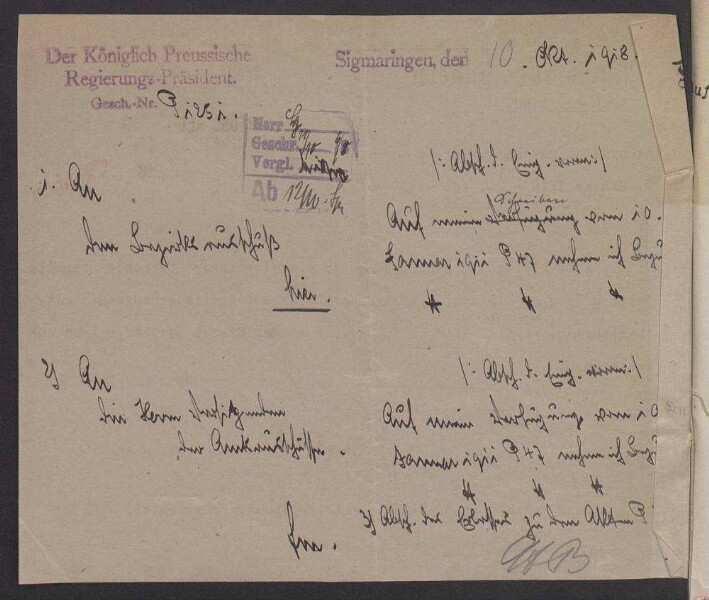 Der Königlich Preussische
Regierungs-Präsident.
Gesch.-Nr. P 1281.
Sigmaringen, den 10. Okt. 1918.
Herr
Geschr.
Vergl.
Ab 12/10.
1. An
den Bezirksausschuß
hier.
/: Absch. d. Eing. vorn. :/
Schreiben
Auf mein Verfügung vom 10.
Januar 1911 P 47 nehme ich Bezu
2) An
die Herrn Vorsitzenden
der Amtsausschüsse.
/: Absch. d. Eing. vorn. :/
Auf meine Verfügung vom 10
Januar 1911 P 47 nehme ich Bezu
3) Absch. des Erlasses zu den Akten P